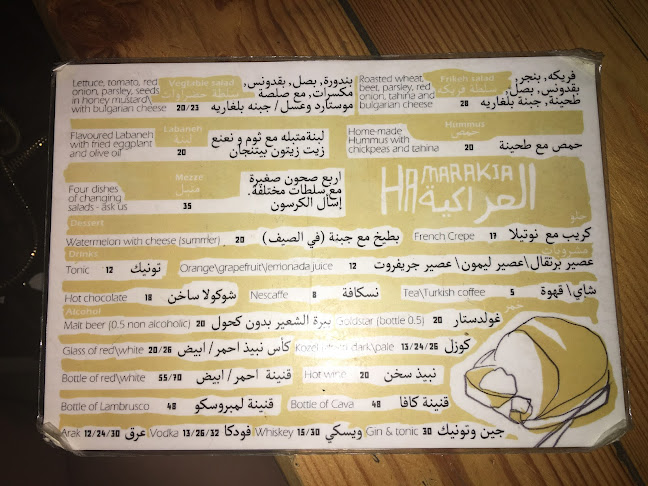 Lettuce, tomato, red
onion, parsley, seeds
in honey mustard\
with bulgarian cheese 20/23
Vegtable salad
سلطة خضراوات
بندورة, بصل, بقدونس,
مكسرات, مع صلصة
موستارد وعسل / جبنه بلغاريه
Roasted wheat,
beer, parsley, red
onion, tahina and
bulgarian cheese 28
Frikeh salad
سلطة فريكه
فريكه, بنجر,
بقدونس, بصل,
طحينة, جبنة بلغاريه
Flavoured Labaneh
with fried eggplant
and olive oil 20
Labaneh
لبنة
لبنةمتبله مع ثوم و نعنع
زيت زيتون بيتنجان
Home-made
Hummus with
chickpeas and tahina 20
Hummus
حمص
حمص مع طحينة
Four dishes
of changing
salads - ask us 35
Mezze
اربع صحون صغيرة
مع سلطات مختلفة.
إسأل الكرسون
HAMARAKIA
المراكية
Dessert حلو
Watermelon with cheese (summer) 20 بطيخ مع جبنة (في الصيف) French Crepe 17 كريب مع نوتيلا
Drinks مشروبات
Tonic 12 تونيك Orange\grapefruit\lemonada juice 12 عصير برتقال\عصير ليمون\عصير جريفروت
Hot chocolate 18 شوكولا ساخن Nescaffe 8 نسكافة Tea\Turkish coffee 5 شاي\ قهوة
Alcohol خمر
Malt beer (0.5 non alcoholic) 20 بيرة الشعير بدون كحول Goldstar (bottle 0.5) 20 غولدستار
Glass of red\white 20/26 كأس نبيذ احمر/ ابيض Kozel dark\pale 13/24/26 كوزل
Bottle of red\white 55/70 قنينة احمر/ ابيض Hot wine 20 نبيذ سخن
Bottle of Lambrusco 48 قنينة لمبروسكو Bottle of Cava 48 قنينة كافا
Arak 12/24/30 عرق Vodka 13/26/32 فودكا Whiskey 15/30 ويسكي Gin & tonic 30 جين وتونيك